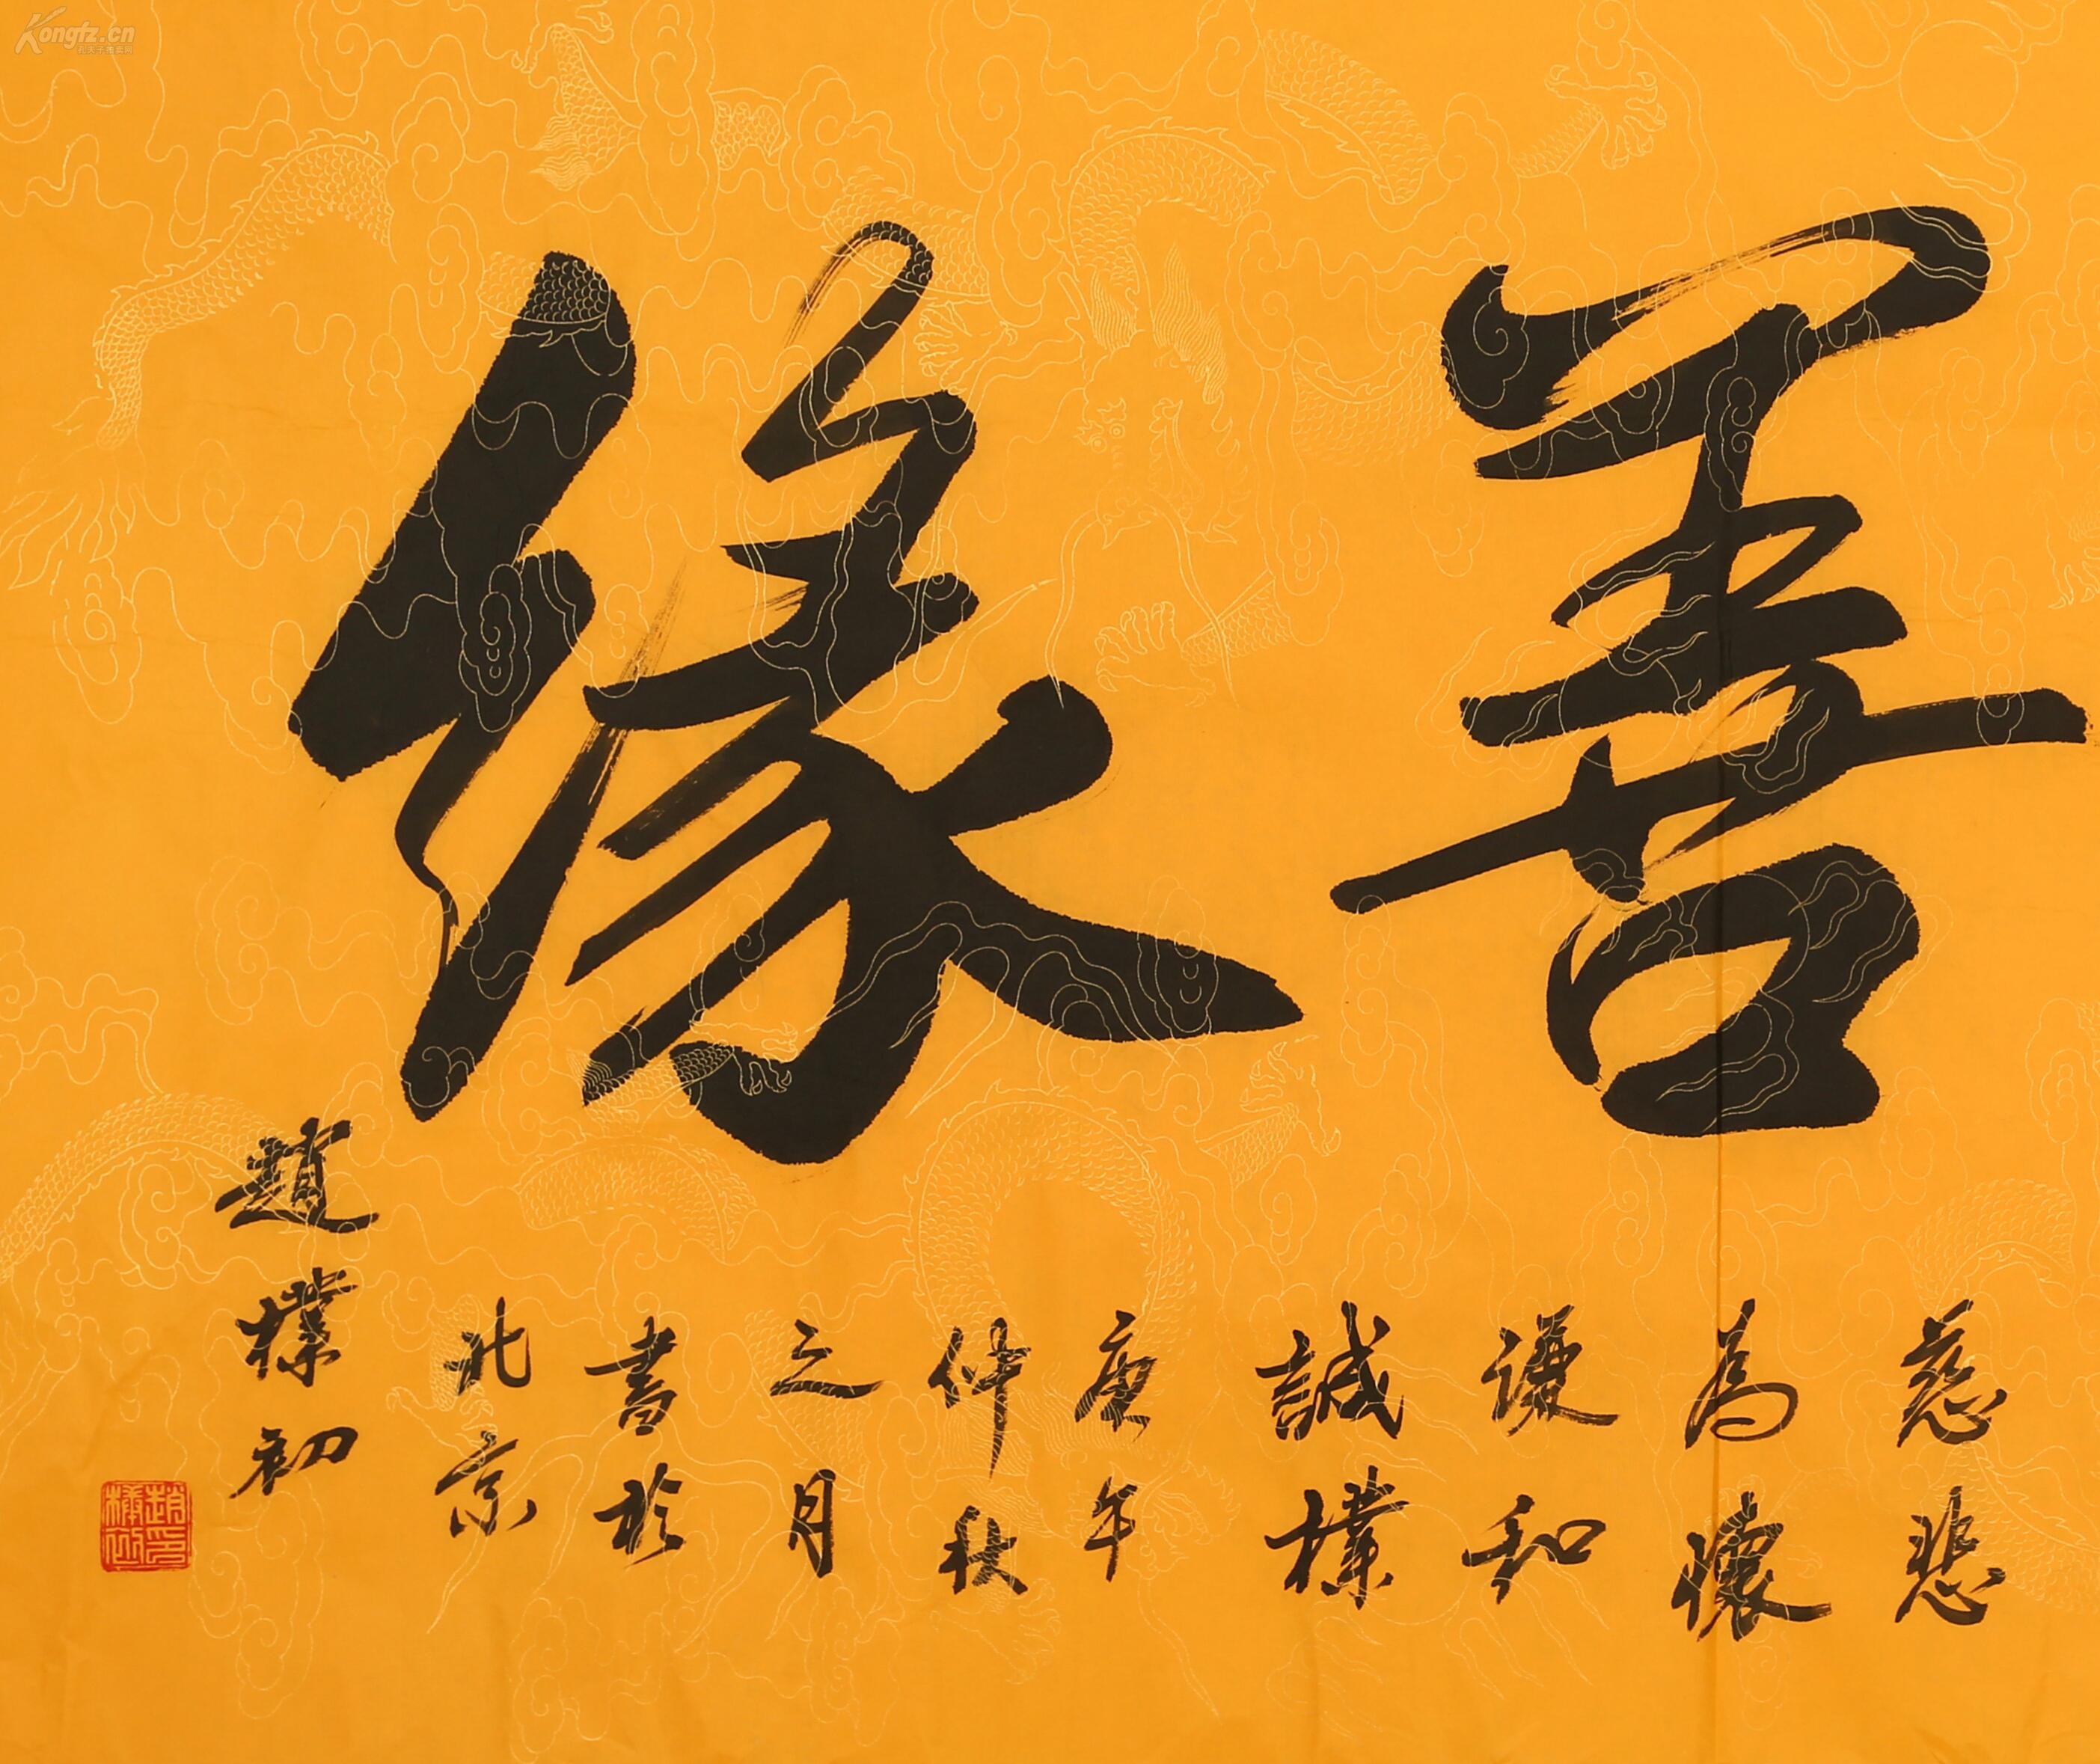 善緣
慈悲
為懷
谦和
誠樸
庚年
仲秋
之月
書於
北京
趙樸初
趙印樸初
Kongfz.cn
孔夫子拍卖网